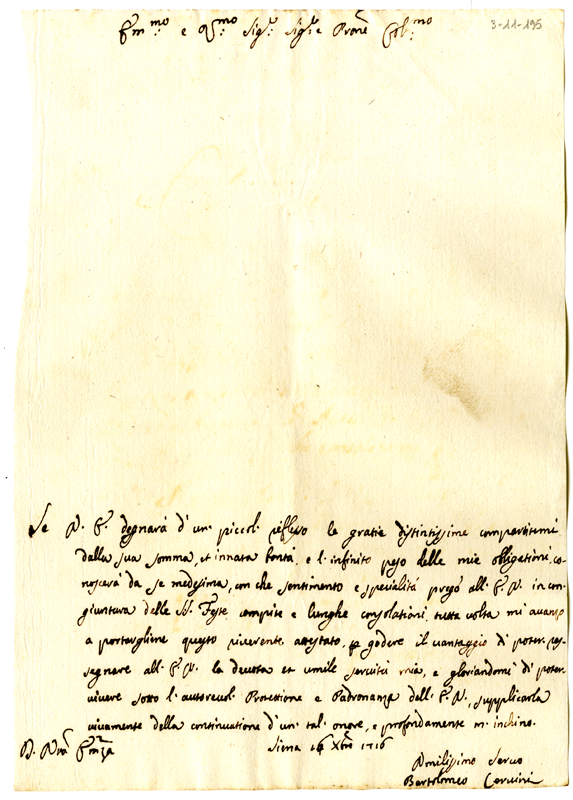 3-11-195
Em:mo e Rmo: Sigr: Sigre Prone Col:mo
Se V. E. degnarà d'un piccol riflesso le gratie distintissime compartitemi
dalla sua somma, et innata bontà, e l'infinito peso delle mie obligationi, co-
noscerà da se medesima, con che sentimento e specialità prego all' E. V. in con-
giuntura delle SS. Feste compite e lunghe consolationi, tutta volta mi avanzo
a portarghine questo riverente attestato, p godere il vantaggio di poter ras-
segnare all' E. V. la devota et umile servitù mia, e gloriandomi di poter
vivere sotto l'autorevol Protettione e Padronanza dell' E. V., supplicarla
vivamente della continuatione d'un tal onore, e profondamente m'inchino.
D. Vra Emza Siena 16 Xbre 1716
Vmilissimo Servo
Bartolomeo Cervini